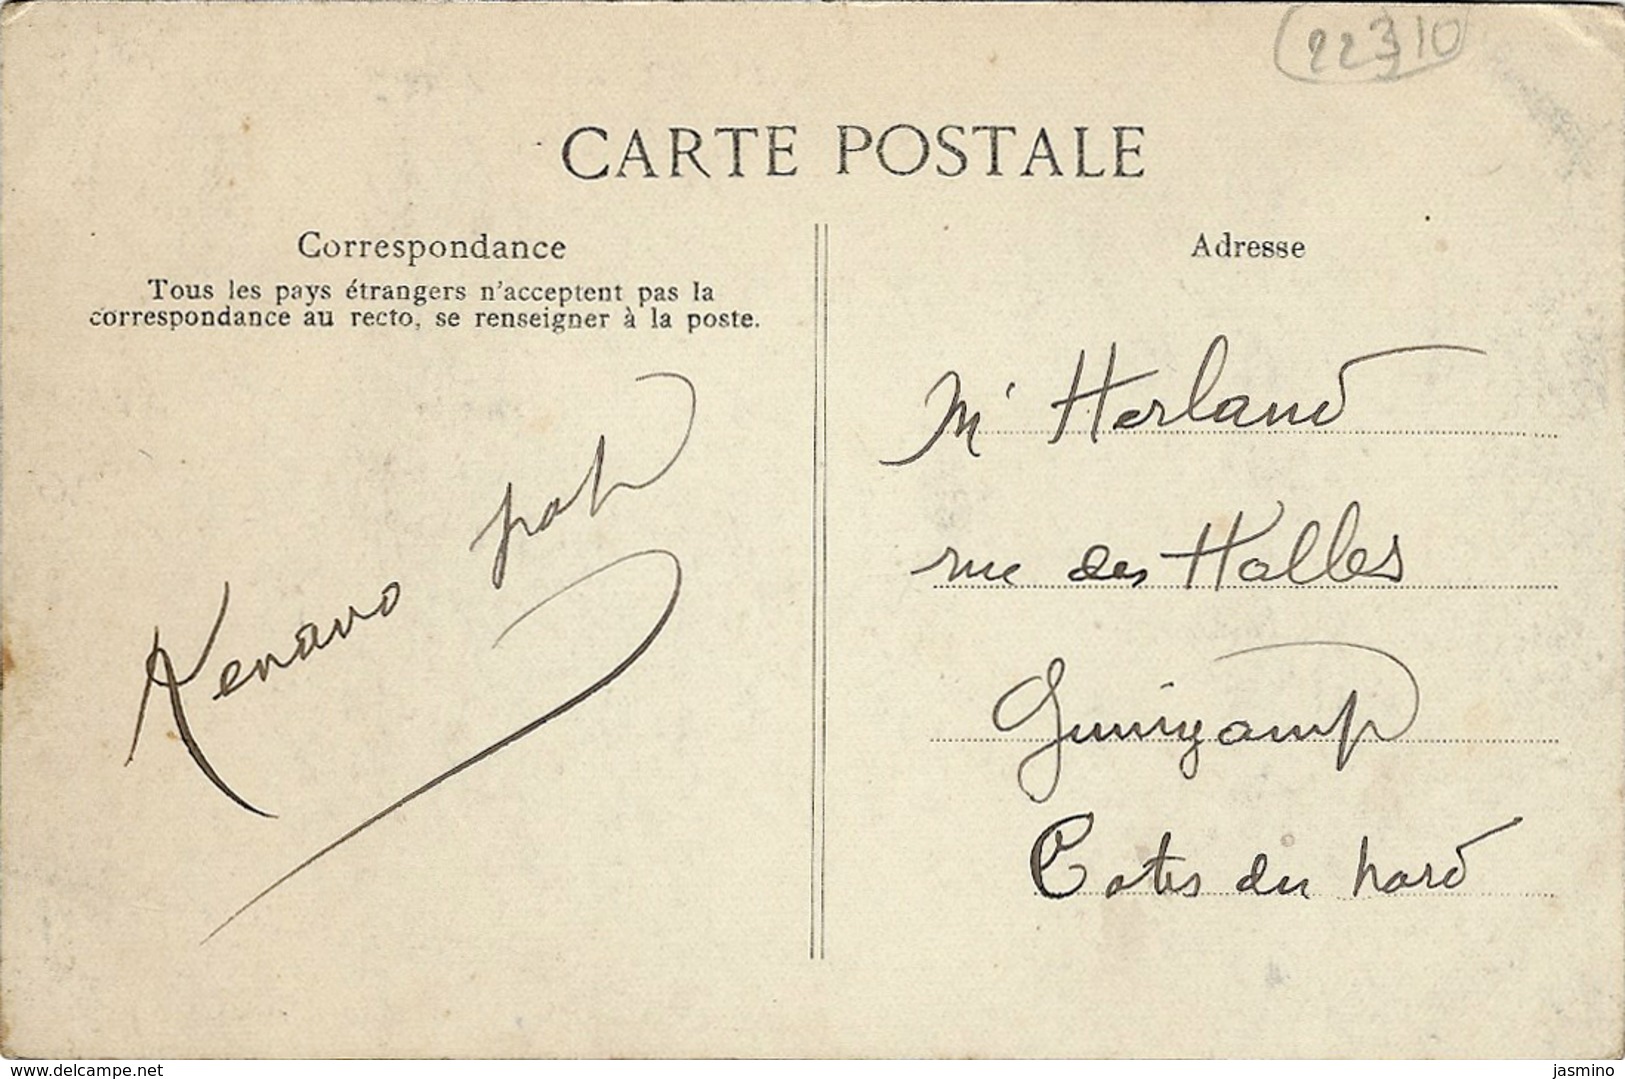 22310
CARTE POSTALE
Correspondance
Tous les pays étrangers n'acceptent pas la
correspondance au recto, se renseigner à la poste.
Kenavo
Adresse
Mr Herland
rue des Halles
Guingamp
Cotes du nord
delcampe.net
jasmino